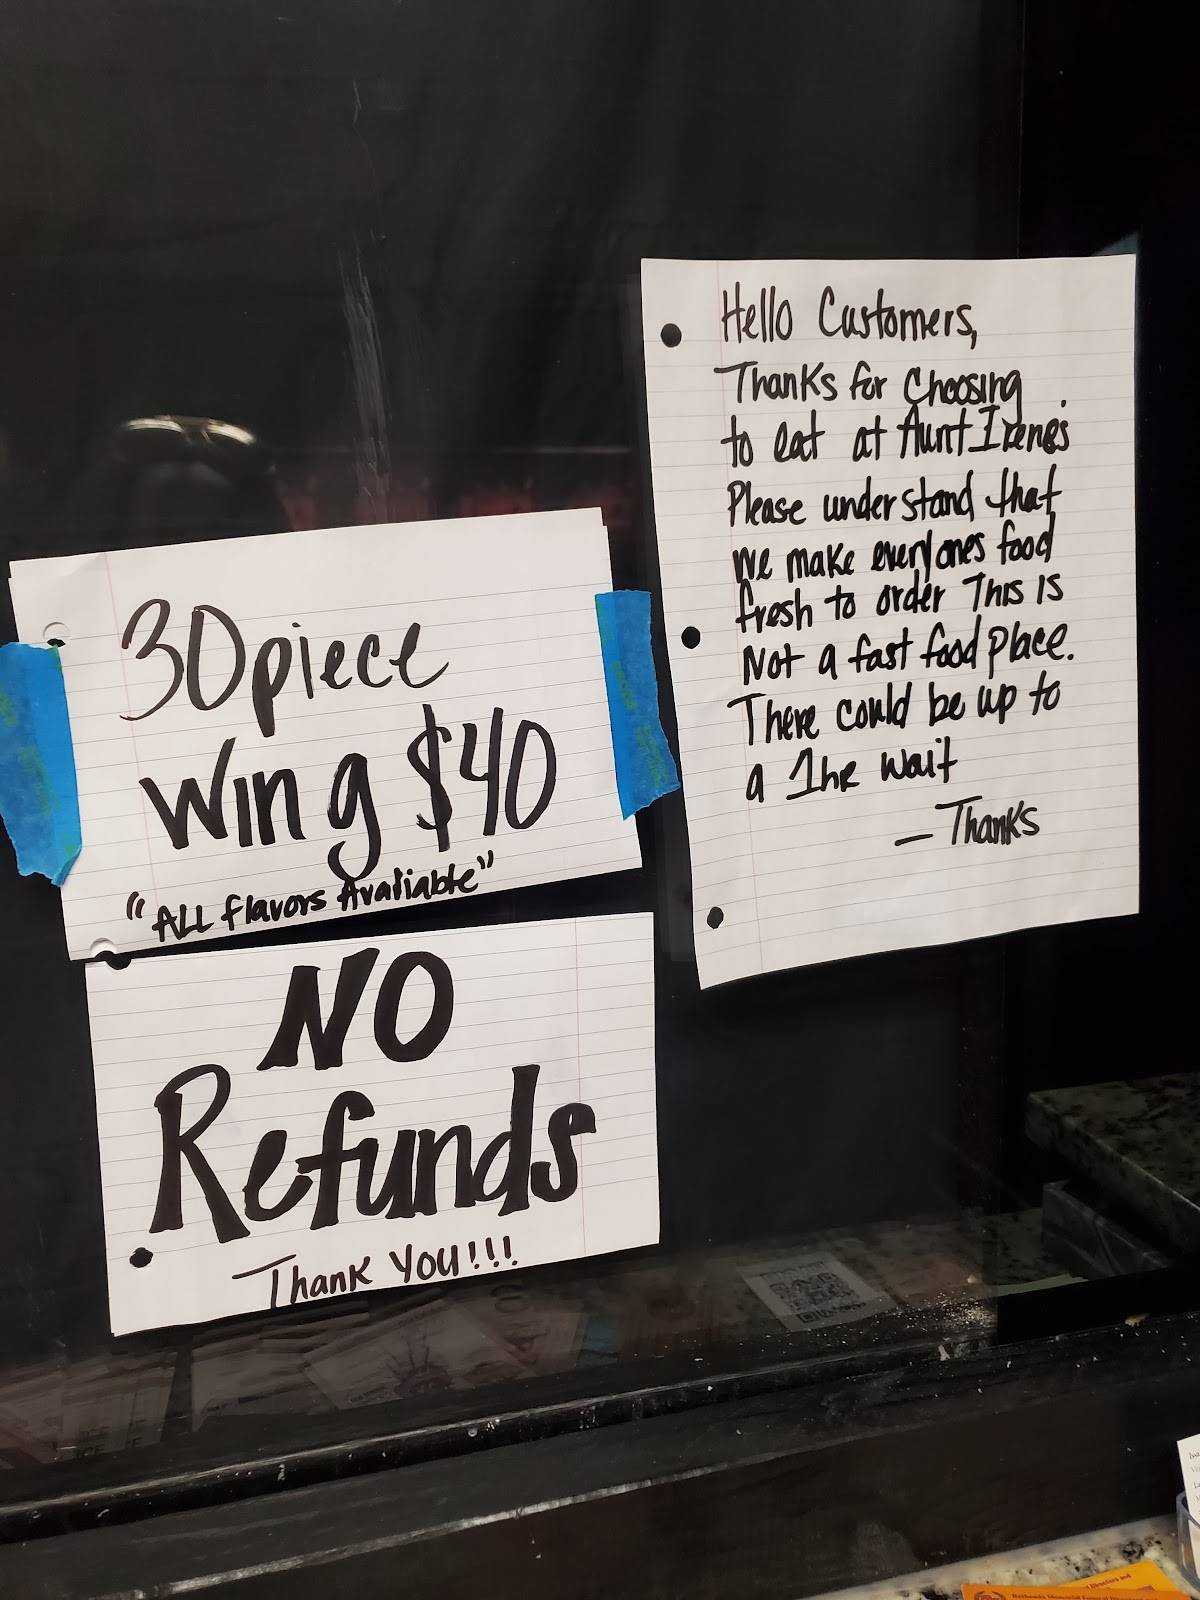 30 piece
Wing $40
"ALL flavors Avaliable"
NO
Refunds
Thank You!!!
Hello Customers,
Thanks for Choosing
to eat at Aunt Irene's
Please understand that
we make everyones food
fresh to order This is
Not a fast food place.
There could be up to
a 1hr wait
— Thanks